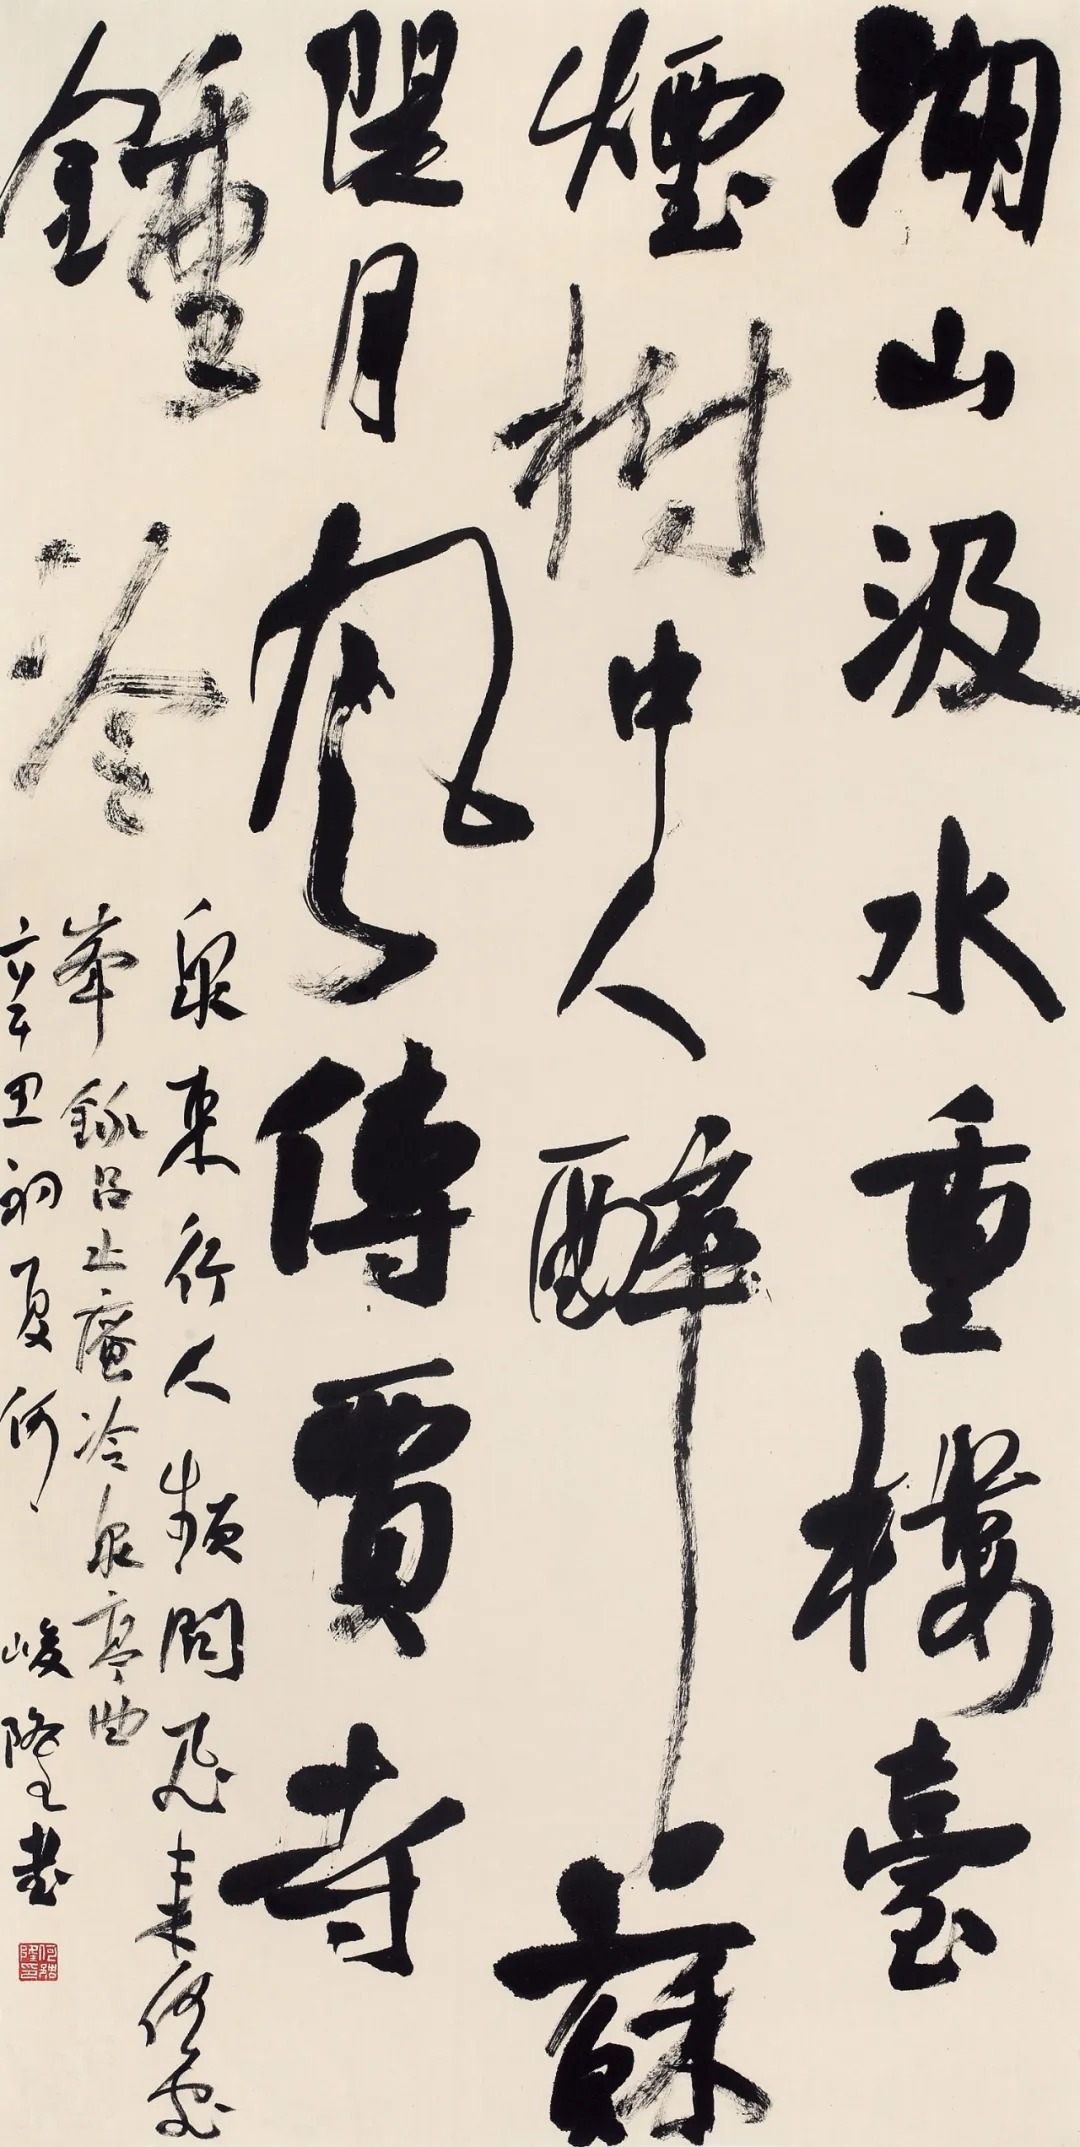 湖山汲水重樓臺
煙樹中人醉蘇
隄月風傳賈寺
鍾冷
泉東行人頻問飛来何處
峯 錄呂止庵冷泉亭曲
辛丑初夏何峻隆書